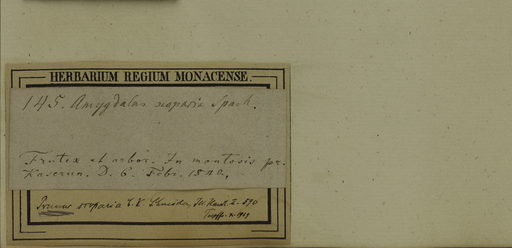 HERBARIUM REGIUM MONACENSE.
145. Amygdalus scoparia Spach.
Frutex et arbor. In montosis pr.
Kaserun. D. 6. Febr.
Prunus scoparia C. K. Schneider, Ill. Handb. I. 590